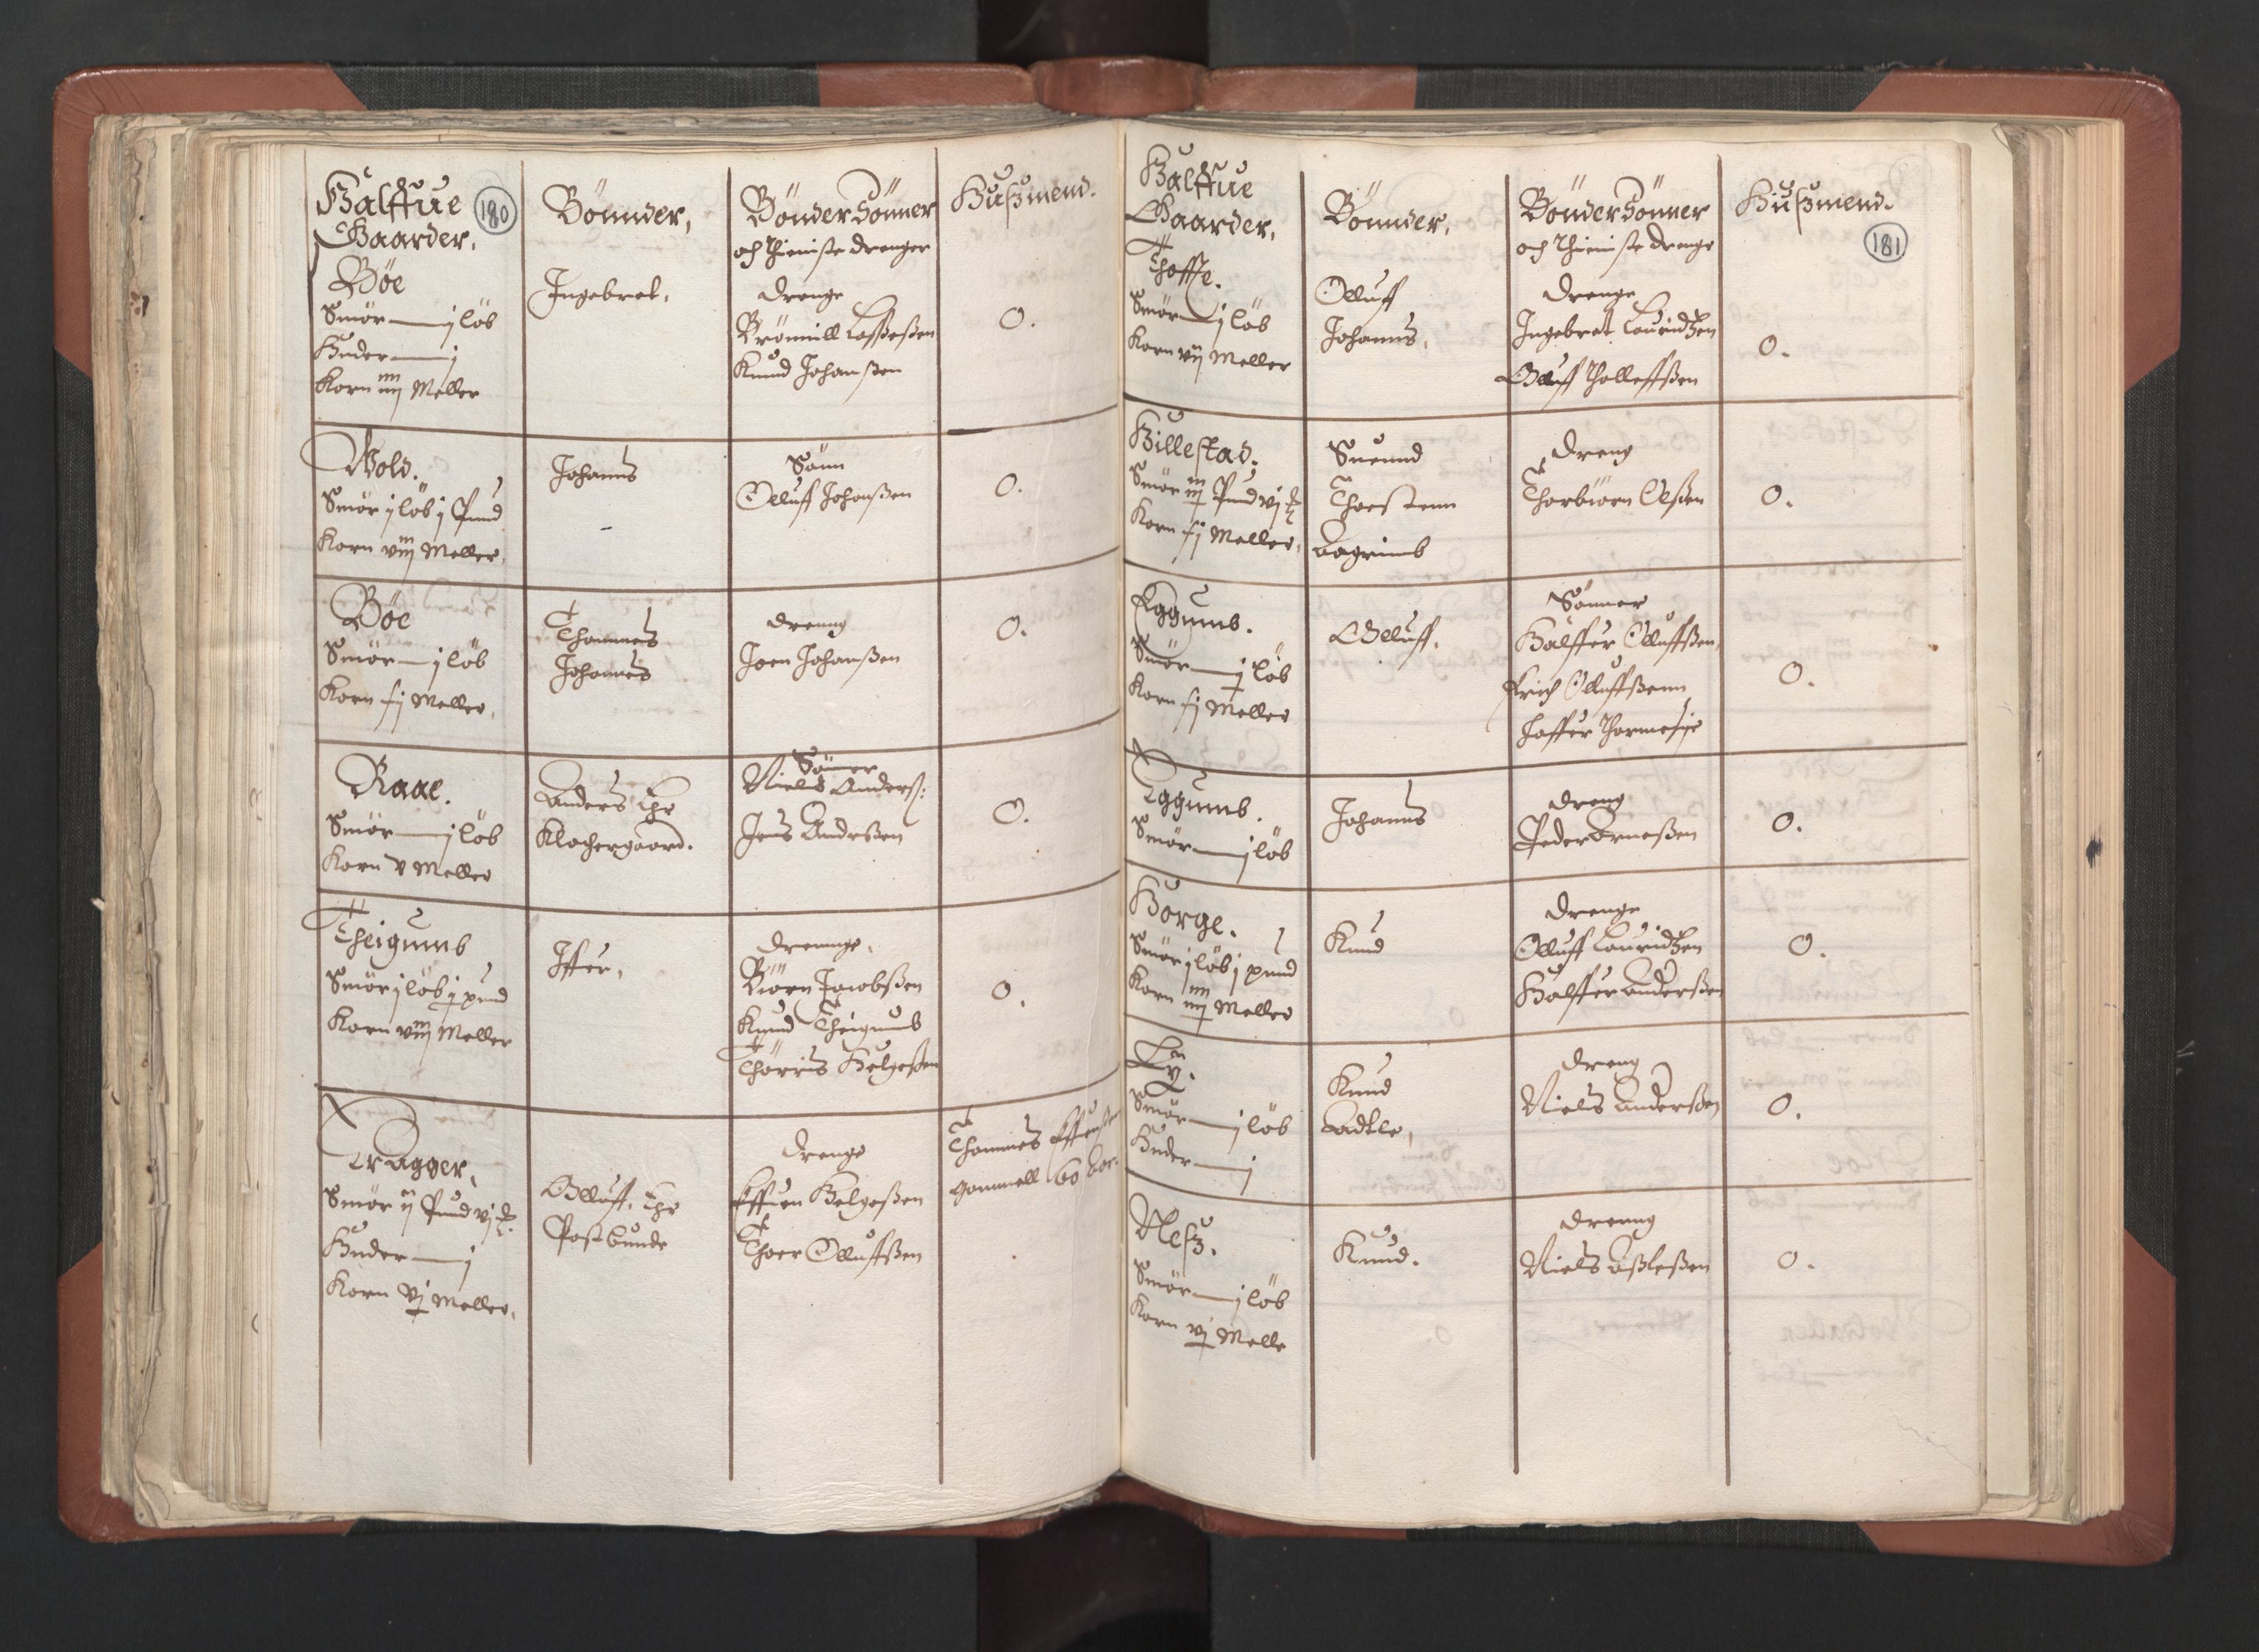 Halffue
Gaarder.
180
Bönnder,
Bönder Sönner
och Thieniste drenger
Huszmend.
Böe
Smör — j löb
Huder — j
Korn iiij Meller
Ingebret,
drenge
Knud Johanßen
0.
Wold.
Smör j löb j Pund
Korn viij Meller,
Johanns
Sönn
Olluff Johanßen
0.
Böe
Smör — j löb
Korn Meller,
Thommes
Johannes
dreng
Joen Johanßen
0.
Raae.
Smör — j löb
Korn v Meller
Anders Thr
Klochergaard.
Sönner
Niels Anders:
Jens Andersßen
0.
Theigums
Smör j löb j pund
Korn viij Meller
Iffer,
drennge,
Biörn Jacobßen
Knud Theigums
Thörris Helgeßen
0.
Kragger,
Smör ij Pund vj
Huder — j
Korn vj Meller,
Olluff, Thr
Postbunde
drenge
Effuen Helgeßen
Thoer Olluffßen
Thommes Effuenßen
gammell 60 aar.
Halffue
Gaarder,
Bönnder,
Bönder Sönner
och Thieniste drenge
Huszmend.
181
Thoffte.
Smör — j löb
Korn vij Meller
Olluff
Johanns,
drenge
Ingebret Lauridtzen
Olluff Tholleffßen
0.
Hillestad.
Smör iij Pund vj
Korn Meller,
Suennd
Thorstenn
Aagrimb
dreng
Thorbiörn Olßen
0.
Eggumb.
Smör — j löb
Korn Meller
Olluff.
Sönner
Halffuer Olluffßen,
Erich Olluffßenn
0.
Eggumb.
Smör — j löb
Johanns
dreng
Peder Arneßen
0.
Borge.
Smör j löb j pund
Korn iiij Meller
Knud
drenge
Olluff Lauridtzen
Halffuer Anderßen
0.
Ly.
Smör — j löb
Huder — j
Knud
Adtle,
dreng
Niels Anderßen
0.
Nesz.
Smör — j löb
Korn vj Melle
Knud.
dreng
Niels Aßleßen
0.